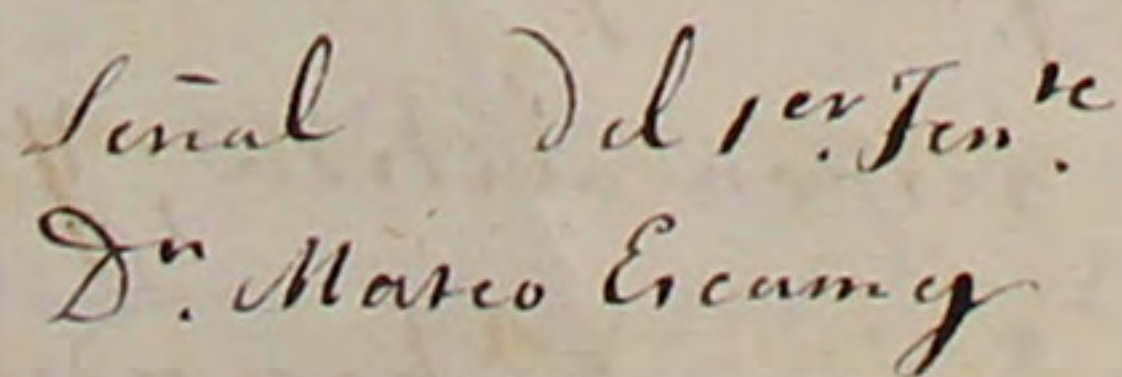 Señal del 1er. Tente.
Dn. Mateo Escamey